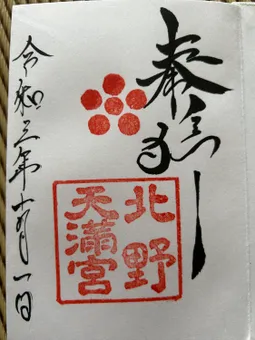 奉拝
北野
天満宮
令和三年 月一日